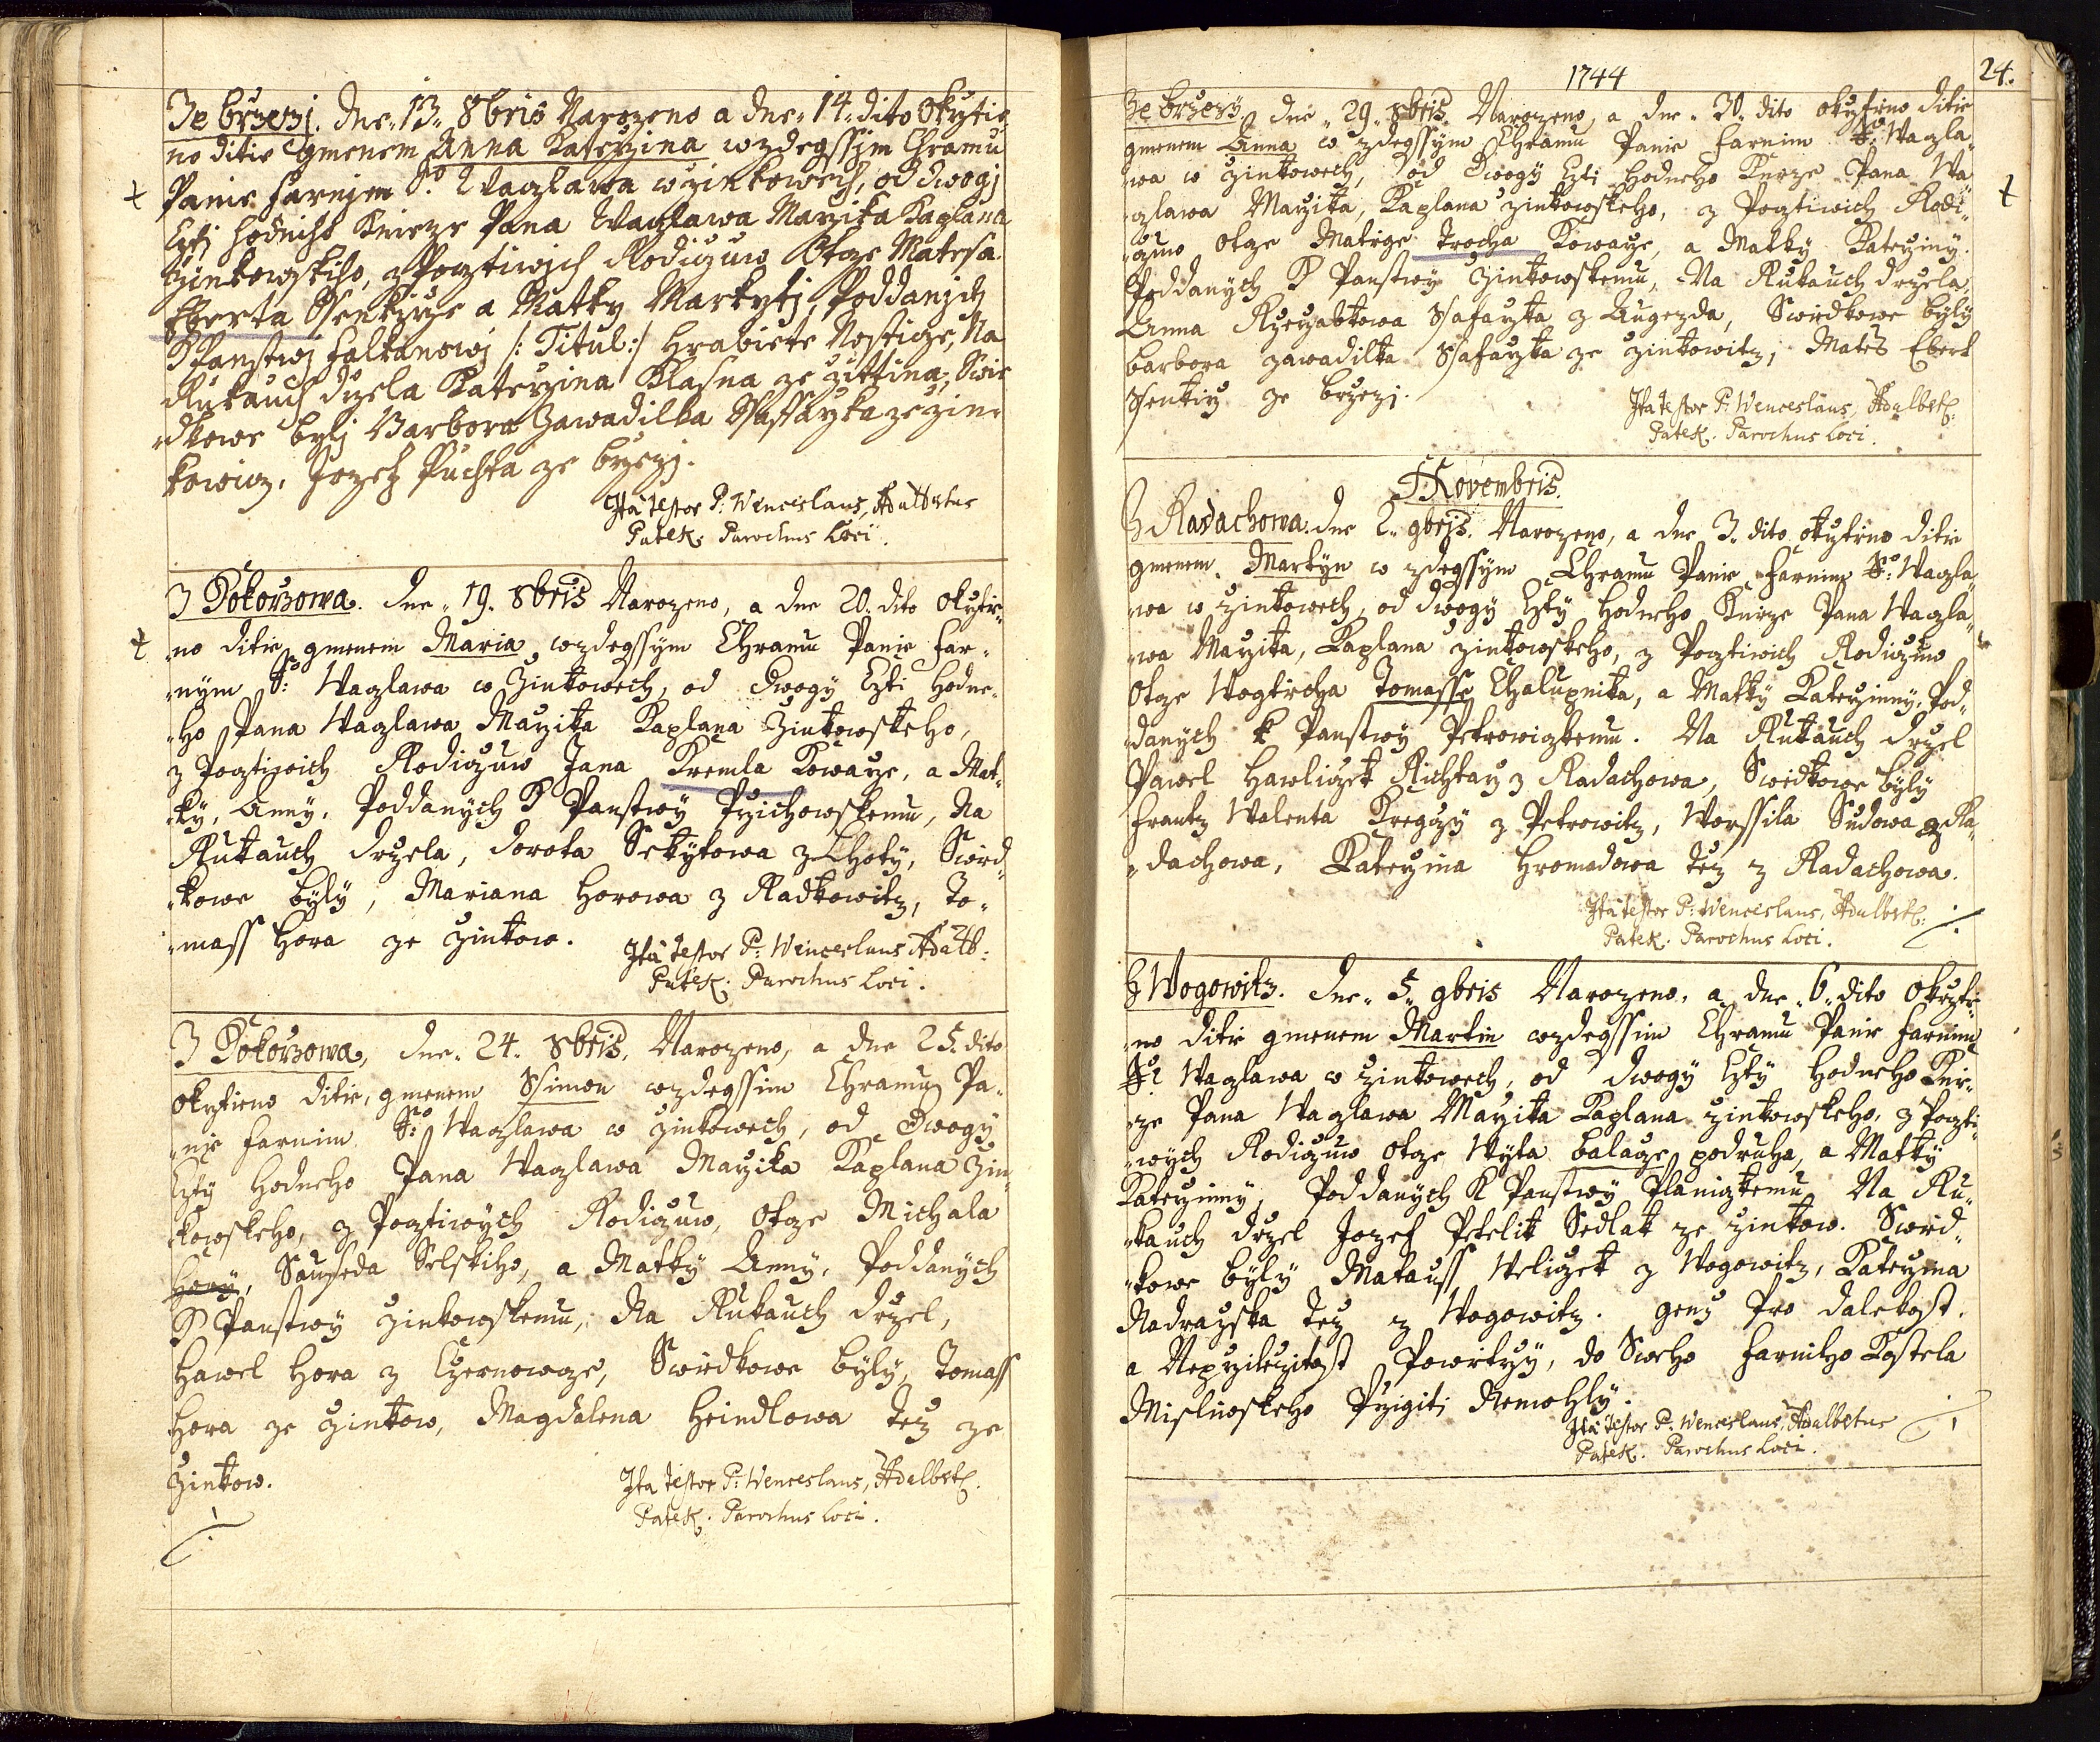 Ze brzezj. dne 13. 8bris Narozeno a dne 14. dito Okrztie
no ditie gmenem Anna Katerzina w zdegssjm Chramu
Panie Farnjm So Waczlawa w Zinkowech, od dwogj
Czti hodniho Knieze Pana Waczlawa Marzika Kaplana
Zinkowskiho, z Pocztiwjch Rodiczuw Otcze Matesa
Eberta Ssenkirze a Matky Markytj, Poddanjch
K Panstwj Falkanowj /: Titul :/ Hrabiete Nosticze, Na
Rukauch drzela Katerzina Klasna ze Zittina, Swie
dkowe bylj Barbora Zawadilka Ssaffarzka ze Zin-
kowicz, Jozeff Puchta ze brzezj.
Ita testor P: Wenceslaus, Adalbertus
Patek. Parochus Loci.
Z Pokorzowa. dne 19. 8bris Narozeno, a dne 20. dito Okrztie-
-no ditie gmenem Maria w zdegssym Chramu Panie Far-
-nym So: Waczlawa w Zinkowech, od dwogy Czti Hodne-
-ho Pana Waczlawa Marzika Kaplana Zinkowskeho,
z Pocztiwich Rodiczuw Jana Kremla Kowarze, a Mat-
-ky, Anny, Poddanych K Panstwy Przichowskemu, Na
Rukauch drzela, dorota Sekytowa z Lhoty, Swied-
-kowe byly, Mariana Horowa z Radkowitz, To-
-mass Hora ze Zinkow.
Ita testor P: Wenceslaus Adalb:
Patek. Parochus Loci.
Z Pokorzowa, dne 24. 8bris, Narozeno, a dne 25. dito
okrztieno ditie, gmenem Ssimon w zdegssim Chramu Pa-
-nie Farnim So: Waczlawa w Zinkowech, od dwogy
Czty Hodneho Pana Waczlawa Marzika Kaplana Zin-
kowskeho, z Pocztiwych Rodiczuw, Otcze Michala
Hory, Sauseda Selskiho, a Matky Anny, Poddanych
K Panstwy Zinkowskemu, Na Rukauch drzel,
Hawel Hora z Czernowoze, Swiedkowe byly, Tomass
Hora ze Zinkow, Magdalena Heindlowa tez ze
Zinkow.
Ita testor P: Wenceslaus, Adalbert:
Patek. Parochus Loci.
1744
24.
Ze brzezy. dne 29. 8bris. Narozeno, a dne 30. dito okrztieno ditie
gmenem Anna w zdegssym Chramu Panie Farnim So Waczla-
-wa w Zinkowech, od dwogy Czti Hodneho Knieze Pana Wa-
czlawa Marzika, Kaplana Zinkowskeho, z Pocztiwich Rodi-
-czuw Otcze Matiege Trocha Kowarze, a Matky Katerziny
Poddanych K Panstwy Zinkowskemu, Na Rukauch drzela
Anna Ssafarzka z Augezda, Swiedkowe byly
barbora Zawadilka Ssafarzka ze Zinkowitz, Mates Ebert
Ssenkirz ze brzezj.
Ita testor P: Wenceslaus, Adalbert:
Patek. Parochus Loci.
Novembris.
Z Radachowa. dne 2. 9bris. Narozeno, a dne 3. dito okrztieno ditie
gmenem Martyn w zdegssym Chramu Panie Farnim So: Waczla-
-wa w Zinkowech, od dwogy Czty Hodneho Knieze Pana Waczla-
-wa Marzika, Kaplana Zinkowskeho, z Pocztiwich Rodiczuw
Otcze Wogtiecha Tomasse Chalupnika, a Matky Katerziny, Pod-
-danych k Panstwy Petrowiczkemu. Na Rukauch drzel
Pawel Hawliczek Richtarz z Radachowa, Swiedkowe byly
Frantz Walenta Kregczy z Petrowitz, Worssila Sudowa z Ra-
-dachowa, Katerzina Hromadowa tez z Radachowa.
Ita testor P: Wenceslaus, Adalbert:
Patek. Parochus Loci.
Z Wogowitz. dne 5. 9bris Narozeno, a dne 6. dito okrztie-
-no ditie gmenem Martin w zdegssim Chramu Panie Farnim
So: Waczlawa w Zinkowech, od dwogy Czty Hodneho Knie-
-ze Pana Waczlawa Marzika Kaplana Zinkowskeho, z Poczti-
-wych Rodiczuw Otcze Wyta balarze podruha, a Matky
Katerziny, Poddanych K Panstwy Planiczkemu Na Ru-
-kauch drzel Jozef Petelik Sedlak ze Zinkow. Swied-
-kowe byly Matauss Weliczek z Wogowitz, Katerzina
Nadrazska tez z Wogowitz. genz Pro dalekost
a Neprzilezitost Powietrzy, do Sweho Farniho Kostela
Misliwskeho Przigiti Nemohly.
Ita testor P: Wenceslaus, Adalbertus
Patek. Parochus Loci.